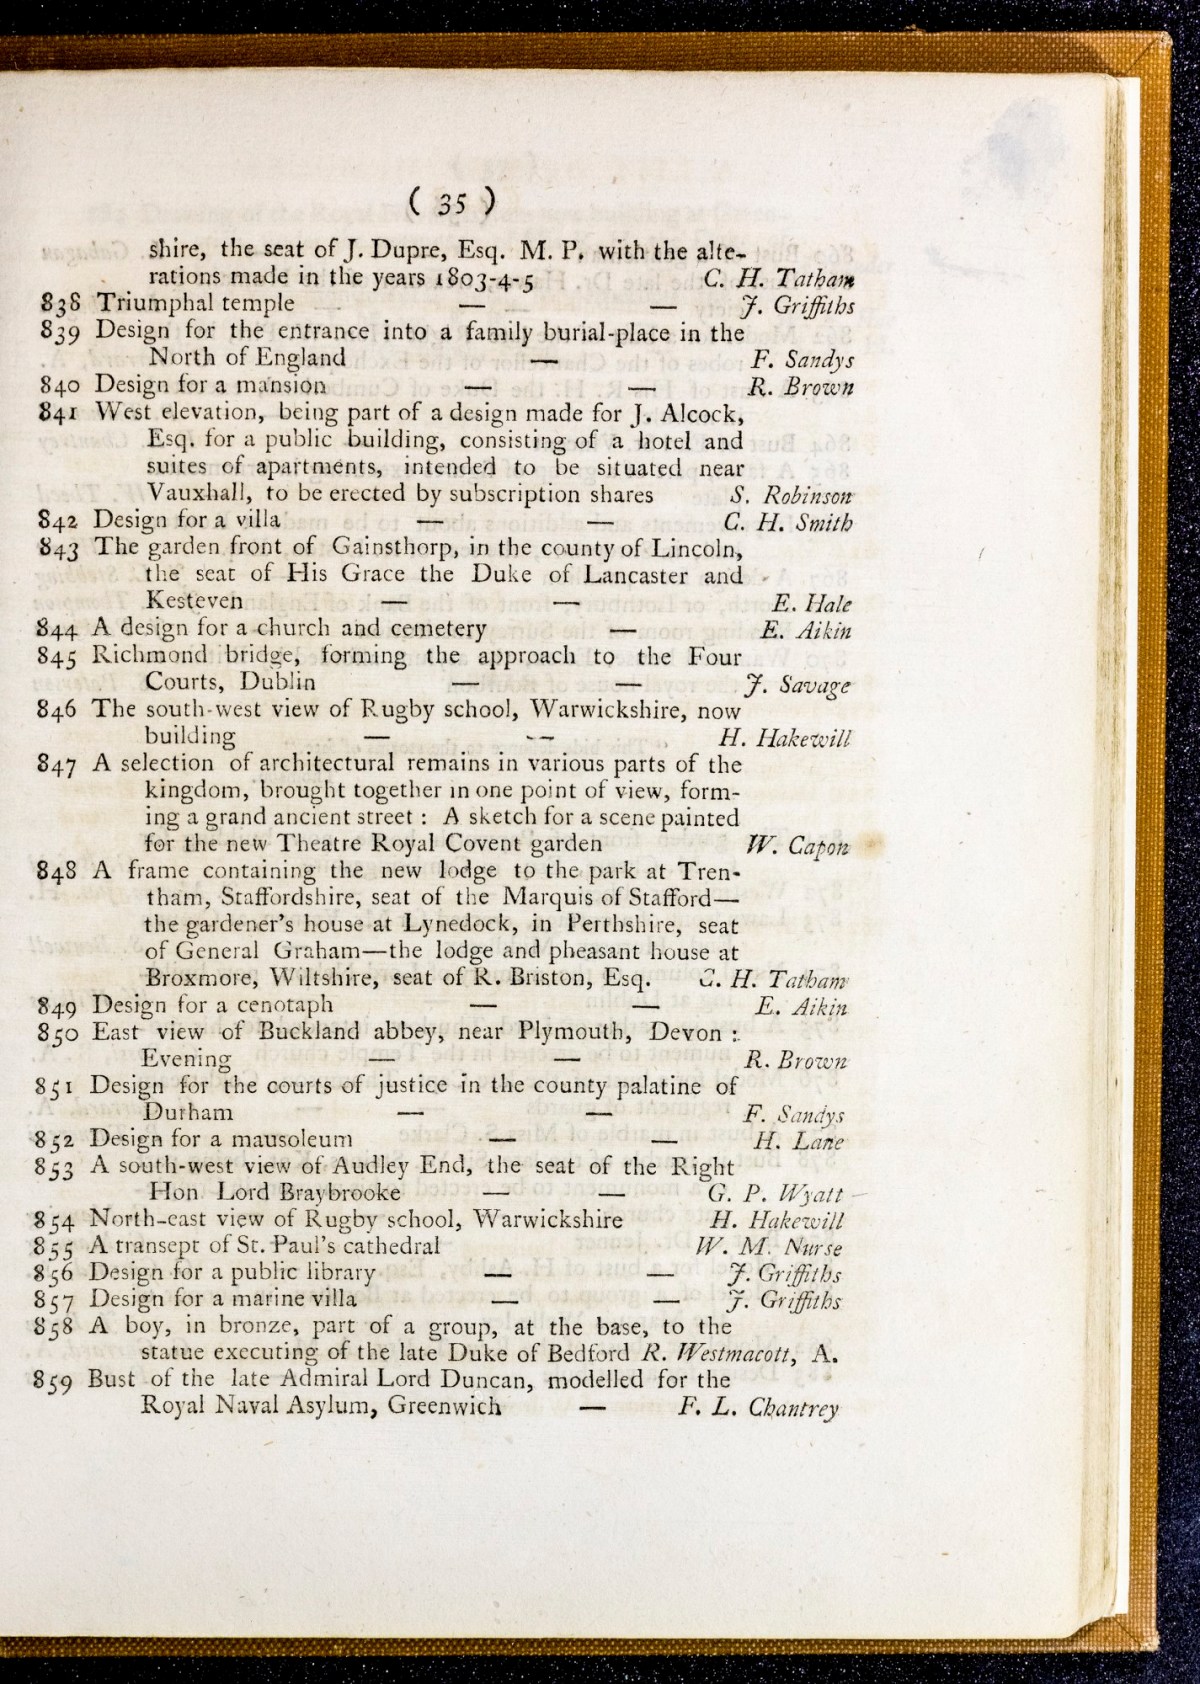 ( 35 )
shire, the seat of J. Dupre, Esq. M. P. with the alte-
rations made in the years 1803-4-5 C. H. Tatham
838 Triumphal temple — — J. Griffiths
839 Design for the entrance into a family burial-place in the
North of England — F. Sandys
840 Design for a mansion — — R. Brown
841 West elevation, being part of a design made for J. Alcock,
Esq. for a public building, consisting of a hotel and
suites of apartments, intended to be situated near
Vauxhall, to be erected by subscription shares S. Robinson
842 Design for a villa — — C. H. Smith
843 The garden front of Gainsthorp, in the county of Lincoln,
the seat of His Grace the Duke of Lancaster and
Kesteven — — E. Hale
844 A design for a church and cemetery — E. Aikin
845 Richmond bridge, forming the approach to the Four
Courts, Dublin — — J. Savage
846 The south-west view of Rugby school, Warwickshire, now
building — — H. Hakewill
847 A selection of architectural remains in various parts of the
kingdom, brought together in one point of view, form-
ing a grand ancient street : A sketch for a scene painted
for the new Theatre Royal Covent garden W. Capon
848 A frame containing the new lodge to the park at Tren-
tham, Staffordshire, seat of the Marquis of Stafford—
the gardener's house at Lynedock, in Perthshire, seat
of General Graham—the lodge and pheasant house at
Broxmore, Wiltshire, seat of R. Briston, Esq. C. H. Tatham
849 Design for a cenotaph — — E. Aikin
850 East view of Buckland abbey, near Plymouth, Devon :
Evening — — R. Brown
851 Design for the courts of justice in the county palatine of
Durham — — F. Sandys
852 Design for a mausoleum — — H. Lane
853 A south-west view of Audley End, the seat of the Right
Hon. Lord Braybrooke — — G. P. Wyatt
854 North-east view of Rugby school, Warwickshire H. Hakewill
855 A transept of St. Paul's cathedral W. M. Nurse
856 Design for a public library — — J. Griffiths
857 Design for a marine villa — — J. Griffiths
858 A boy, in bronze, part of a group, at the base, to the
statue executing of the late Duke of Bedford R. Westmacott, A.
859 Bust of the late Admiral Lord Duncan, modelled for the
Royal Naval Asylum, Greenwich — F. L. Chantrey